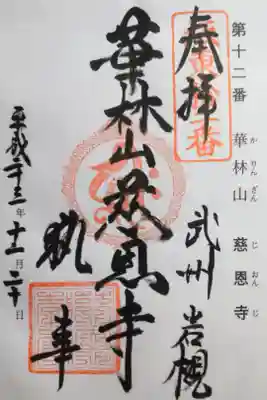 第十二番 華林山 慈恩寺
かりんざん じおんじ
奉拝
武州岩槻
華林山慈恩寺
執事
平成二十三年十二月二十日